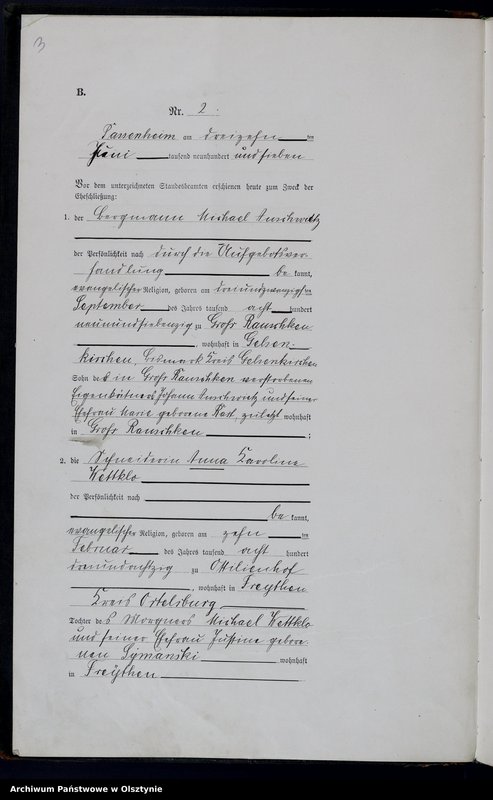 3
B.
Nr. 2.
Passenheim am dreizehn ten
Juni tausend neunhundert und sieben
Vor dem unterzeichneten Standesbeamten erschienen heute zum Zweck der
Eheschließung:
1. der Bergmann Michael
der Persönlichkeit nach durch die Aufgebotsver-
handlung be kannt,
evangelischer Religion, geboren am dreiundzwanzigsten
September des Jahres tausend acht hundert
neunundsiebenzig zu Groß Rauschken
, wohnhaft in Gelsen-
kirchen, Bismarck Kreis Gelsenkirchen
Sohn des in Groß Rauschken verstorbenen
Eigenkätners Johann und seiner
Ehefrau Marie geborene zuletzt wohnhaft
in Groß Rauschken ;
2. die Schneiderin Anna Karoline
Wettklo
der Persönlichkeit nach
be kannt,
evangelischer Religion, geboren am zehn ten
Februar des Jahres tausend acht hundert
dreiundachtzig zu Ottilienhof
, wohnhaft in Freythen
Kreis Ortelsburg
Tochter des Michael Wettklo
und seiner Ehefrau Justine gebore-
nen Symanski wohnhaft
in Freythen
Archiwum Państwowe w Olsztynie